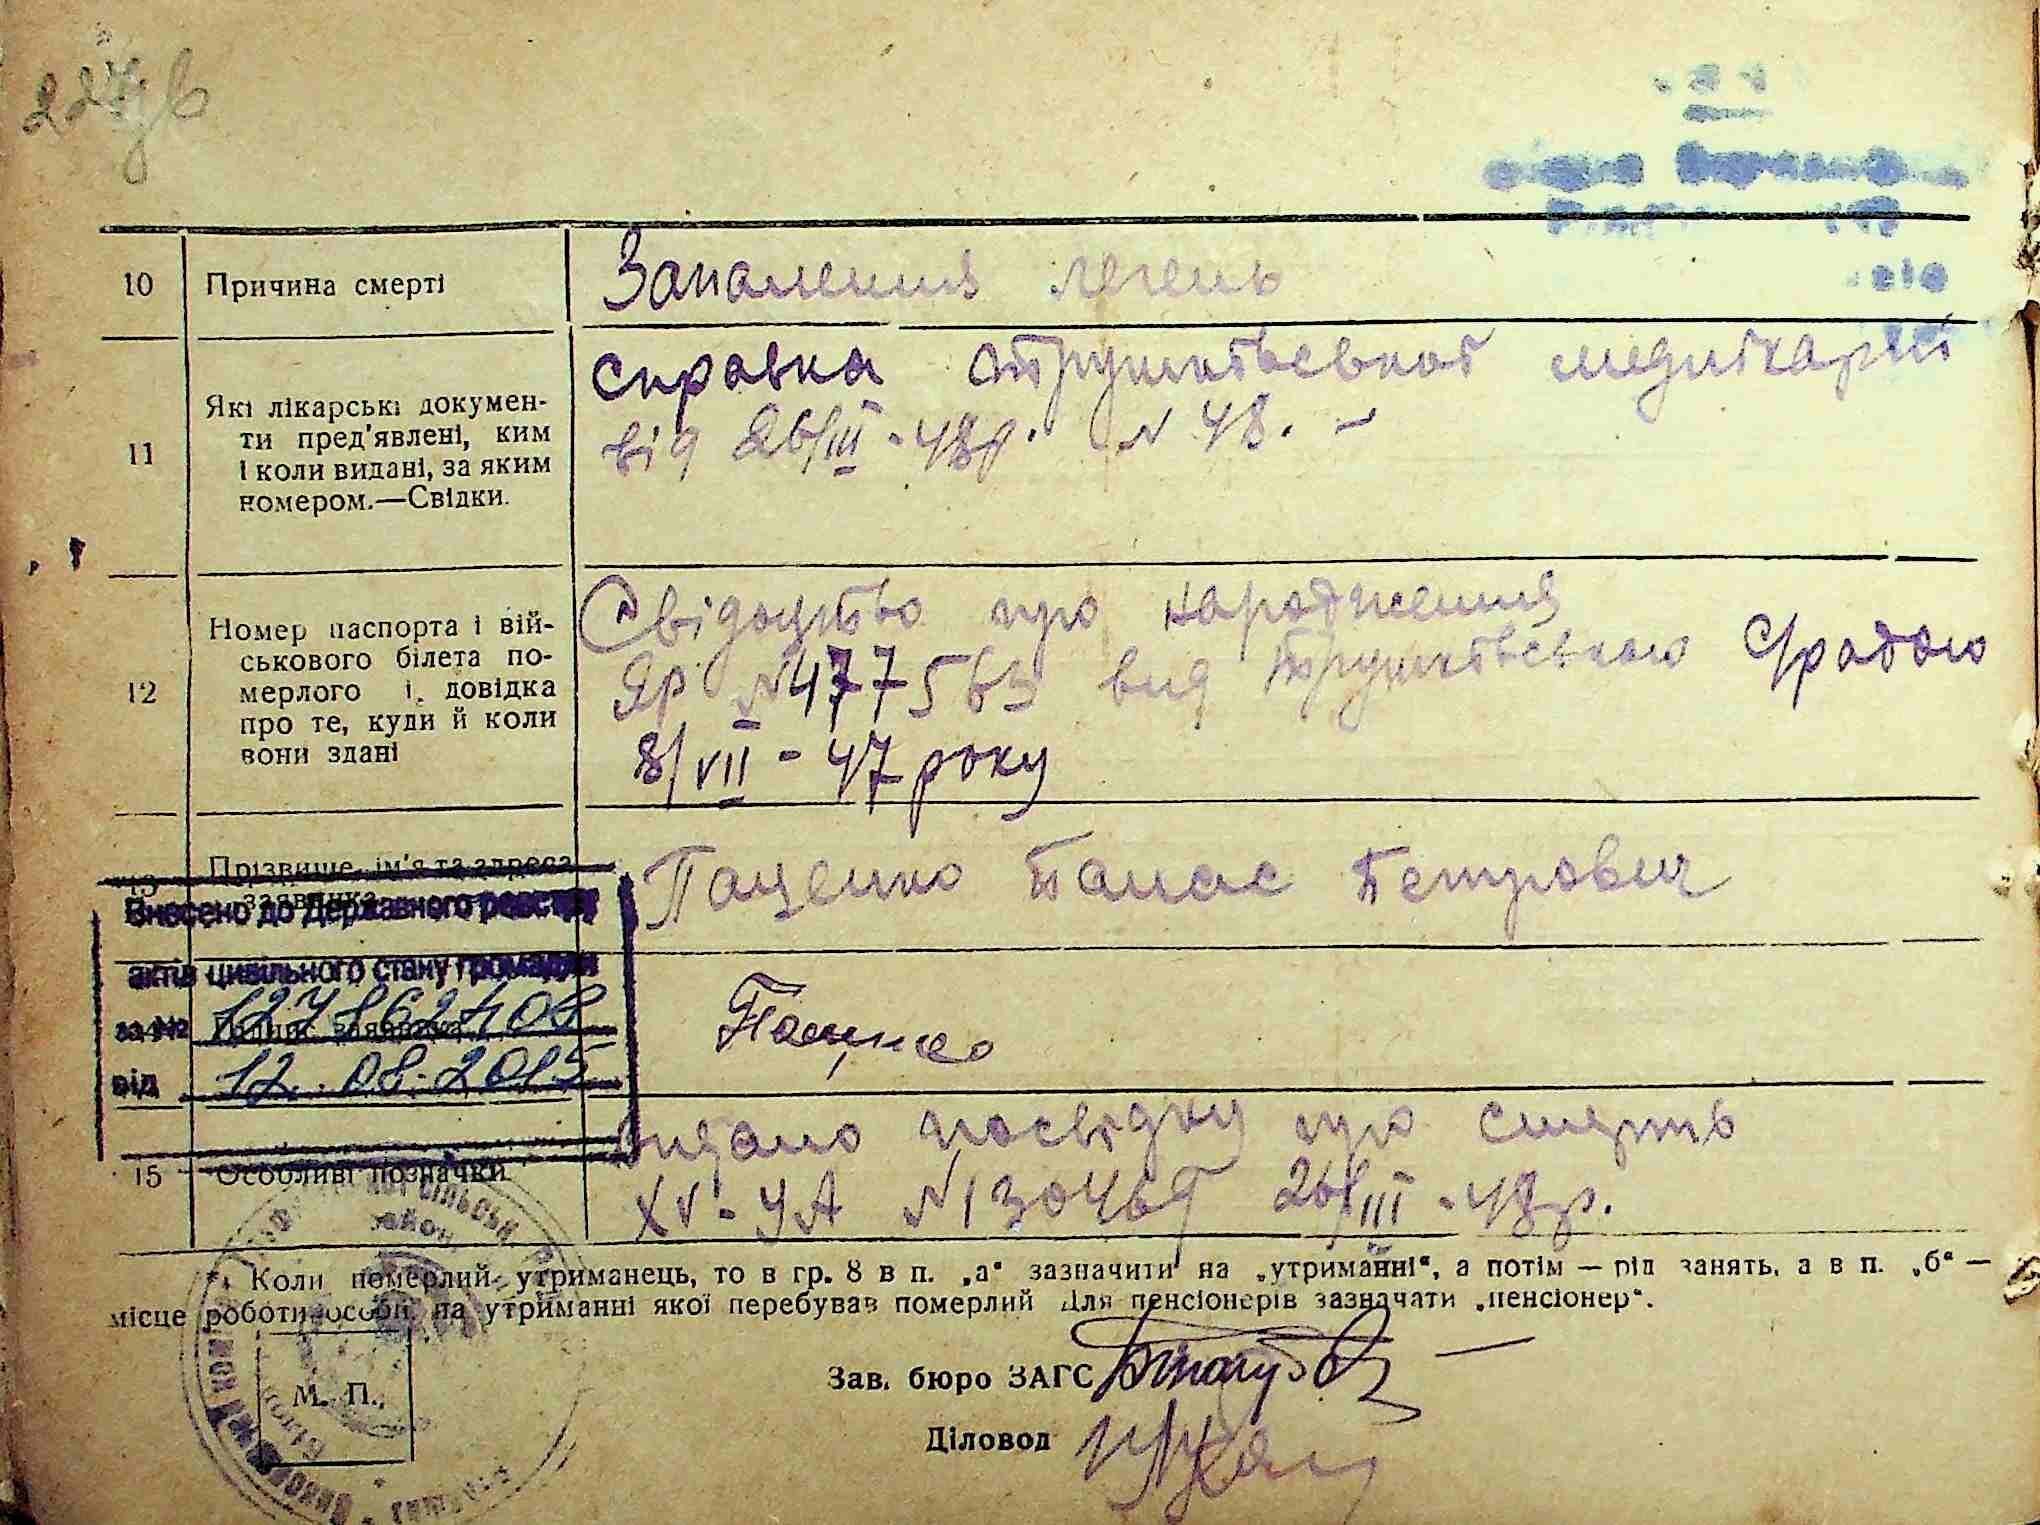 227 зв
10 Причина смерті Запалення легень
11 Які лікарські докумен-
ти пред'явлені, ким
і коли видані, за яким
номером.—Свідки.
справка медлікарні
від 26/III - 48р. N 48. —
12 Номер паспорта і вій-
ськового білета по-
мерлого і довідка
про те, куди й коли
вони здані
Свідоцтво про народження
ЯР N 477563 вид С/радою
8/VII - 47 року
13 Прізвище, ім'я та адреса
заявника
Паценко Панас Петрович
Внесено до Державного реєстру
актів цивільного стану громадян
за № 127862408
від 12.08.2015
Підпис заявника
Паценко
15 Особливі позначки
видано посвідку про смерть
XV-УА N 130469 26/III - 48р.
*) Коли померлий утриманець, то в гр. 8 в п. „а“ зазначити на „утриманні“, а потім — рід занять, а в п. „б“ —
місце роботи особи, на утриманні якої перебував померлий Для пенсіонерів зазначати „пенсіонер“.
М. П.
Зав. бюро ЗАГС
Діловод